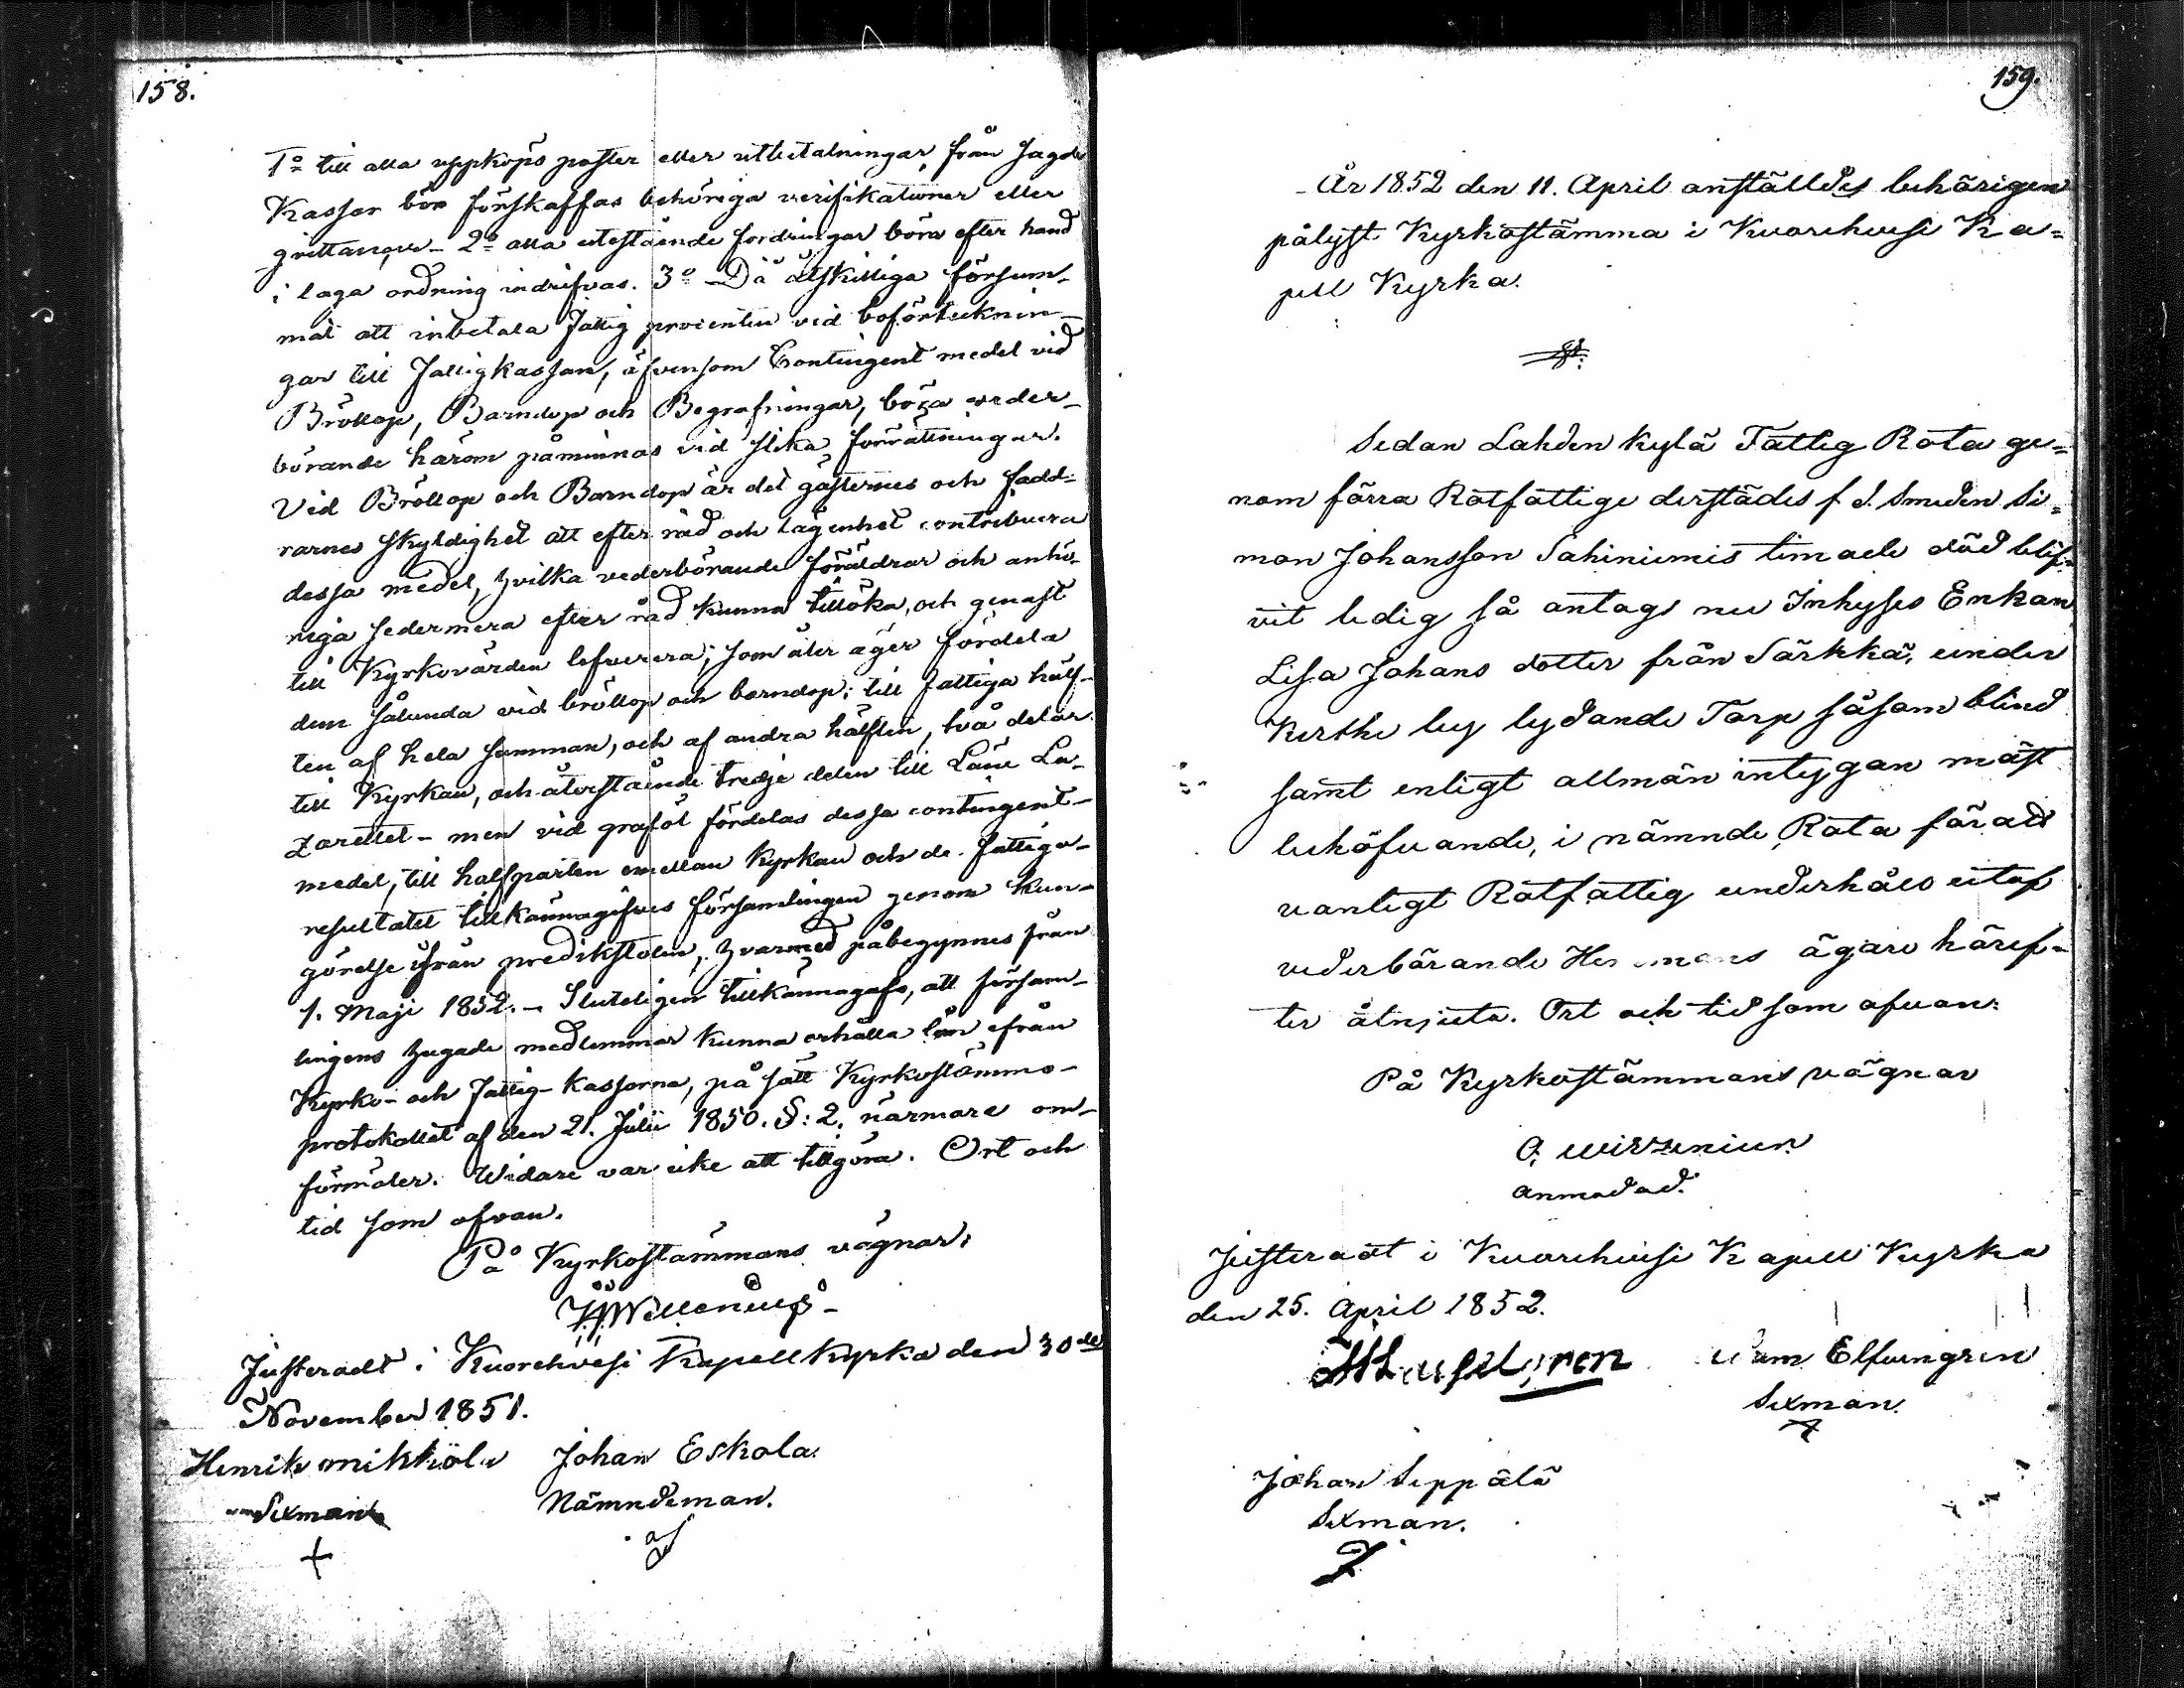 158.
1:o till alla uppköps poster eller utbetalningar från sagde
Kassor bör förskaffas behöriga verifikationer eller
qvittancer – 2:o alla utestående fordringar böra efter hand
i laga ordning indrifvas. 3:o – Då åtskilliga försum-
mat att inbetala fattig procenten vid boförtecknin-
gar till Fattigkassan, äfvensom Contingent medel vid
Bröllop, Barndop och Begrafningar, böra veder-
börande härom påminnas vid slika förrättningar.
Vid Bröllop och Barndop är det gästernes och fadd-
rarnes skyldighet att efter råd och lägenhet contribuera
dessa medel, hvilka vederbörande föräldrar och anhö-
riga sedermera efter råd kunna tillöka, och genast
till Kyrkovärden lefverera; som åter äger fördela
dem sålunda vid bröllop och barndop; till fattiga hälf-
ten af hela summan, och af andra hälften, två delar
till Kyrkan, och återstående tredje delen till Läne La-
zarettet – men vid graföl fördelas dessa contingent-
medel, till halfparten emellan Kyrkan och de fattiga –
resultatet tillkännagifves församlingen genom kun-
görelse ifrån predikstolen, hvarmed påbegynnes från
1. Maji 1852. – Sluteligen tillkännagafs, att försam-
lingens hugade medlemmar kunna erhålla lån ifrån
Kyrko- och Fattig-kassorna, på sätt Kyrkostämmo-
protokollet af den 21. Julii 1850. §: 2. närmare om-
förmäler. Widare var icke att tillgöra. Ort och
tid som ofvan.
På Kyrkostämmans vägnar,
Wellenius
Justeradt i Kuorehvesi Kapell Kyrka den 30de
November 1851.
Henrik Johan Eskola
Sexman Nämndeman.
159.
År 1852 den 11. April anställdes behörigen
pålyst Kyrkostämma i Kuorehvesi Ka-
pell Kyrka.
§1.
Sedan Lahden kylä Fattig Rota ge-
nom förra Rotfattige derstädes f. d. Smeden Si-
mon Johansson Sahiniemis timade död blif-
vit ledig så antags nu Inhyses Enkan
Lisa Johans dotter från Särkkä, under
lydande Torp såsom blind
samt enligt allmän intygan mäst
behöfvande, i nämnde Rota för att
vanligt Rotfattig underhåll utaf
vederbörande Hemmans ägare häref-
ter åtnjuta. Ort och tid som ofvan.
På Kyrkostämmans vägnar
O. Wirzenius
anmodad.
Justeradt i Kuorehvesi Kapell Kyrka
den 25. April 1852.
Elfvengren
Sexman.
Johan Seppälä
Sexman.